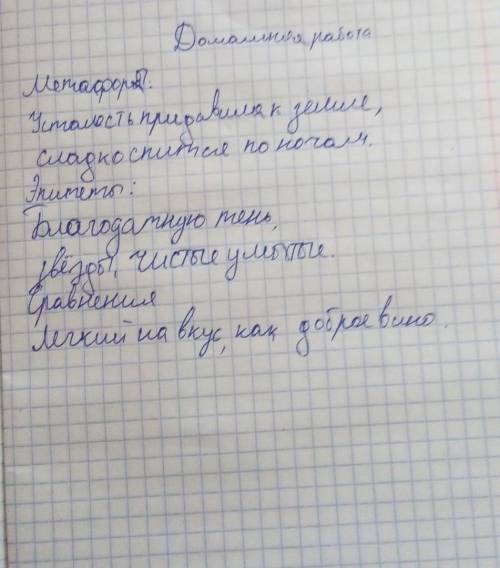 Домашняя работа
Метафоры:
Усталость придавила к земле,
сладко спиться по ночам.
Эпитеты:
Благодатную тень,
звёзды, чистые умытые.
Сравнения
Легкий на вкус, как доброе вино.